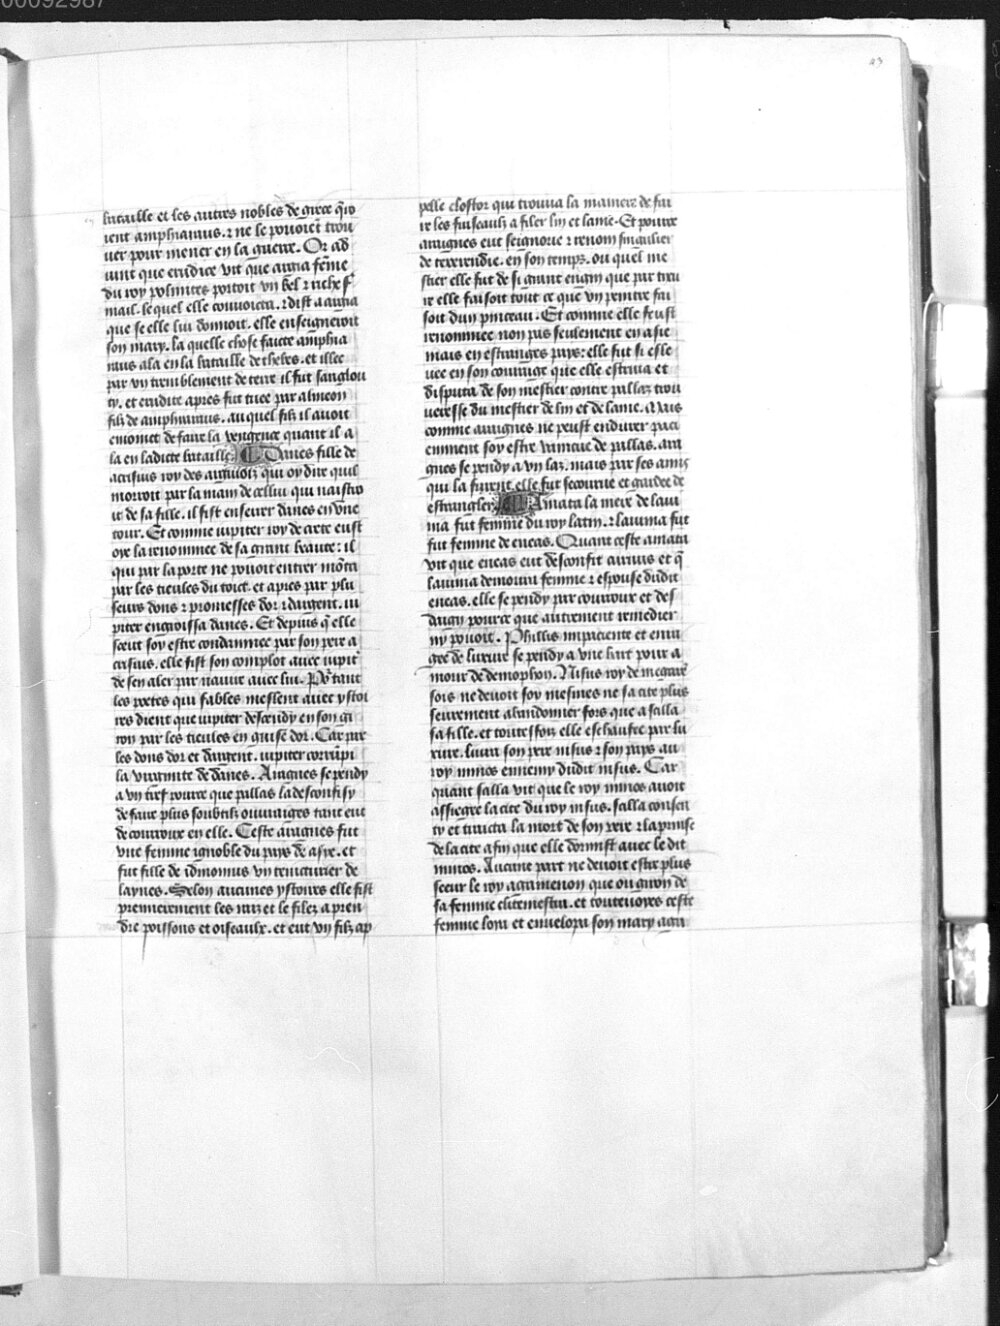 00092987
43
bataille et les autres nobles de grece q̄ro
ient amphiaraus. ⁊ ne le pouoiēt trou
uer pour mener en la guerre. Or ad
uint que erudice vit que argia fēme
du roy polinites portoit vn bel ⁊ riche f
mail. lequel elle conuoicta. ⁊ dist a argia
que se elle lui donnoit. elle enseigneroit
son mary. la quelle chose faicte amphia
raus ala en la bataille de thebes. et illec
par vn tremblement de terre il fut sanglou
ty. et erudice apres fut tuee par almeon
filz de amphiaraus. au quel filz il auoit
enioinct de faire la vengence quant il a
la en ladicte bataille. Danes fille de
acrisius roy des argiuois qui oy dire quil
morroit par la main de cellui qui naistro
it de sa fille. il fist enserrer danes en vne
tour. Et comme iupiter roy de crete eust
oye la renommee de sa grant beaute: il
qui par la porte ne pouoit entrer mōta
par les tieules du toict. et apres par plu
seurs dons ⁊ promesses dor ⁊ dargent. iu
piter engroissa danes. Et depuis q̄ elle
sceut soy estre condamnee par son pere a
crisius. elle fist son complot auec iupit
de sen aler par nauire auec lui. Po tant
les poetes qui fables meslent auec ystoi
res dient que iupiter descendy en son gi
ron par les tieules en guise dor. Car par
les dons dor et dargent. iupiter corrūpi
la virginite de danes. Aragnes se pendy
a vn tref pource que pallas la desconfisy
de faire plus soubtilz ouuraiges tant eut
de courroux en elle. Ceste aragnes fut
vne femme ignoble du pays de asye. et
fut fille de idmonius vn tencturier de
laynes. Selon aucunes ystoires elle fist
premierement les raiz et le filez a pren
dre poissons et oiseaulx. et eut vn filz ap
pelle clostor qui trouua la maniere de fai
re les fuiseaulx a filer lin et laine. Et pource
aragnes eut seignorie ⁊ renom singulier
de reuerendie. en son temps. ou quel me
stier elle fut de si grant engin que par trai
re elle faisoit tout ce que vn peintre fai
soit dun pinceau. Et comme elle feust
renommee non pas seulement en asie
mais en estranges pays: elle fut si esle
uee en son courage que elle estriua et
disputa de son mestier contre pallas trou
ueresse du mestier de lin et de laine. Mais
comme aragnes ne peust endurer paci
emment soy estre vaincue de pallas. ara
gnes se pendy a vn laz. mais par ses amis
qui la furent elle fut secourue et gardee de
estrangler. Amata la mere de laui
nia fut femme du roy latin. ⁊ lauinia fut
fut femme de eneas. Quant ceste amata
vit que eneas eut desconfit turnus et q̄
lauinia demoura femme ⁊ espouse dudit
eneas. elle se pendy par courroux et des
daing pource que autrement remedier
ny pouoit. Phillis impaciente et enra
gee de luxure se pendy a vne hart pour a
mour de demophon. Nisus roy de megare
sois ne deuoit soy mesmes ne sa cite plus
seurement abandonner fors que a scilla
sa fille. et toutesfois elle eschaufee par lu
xure. liura son pere nisus ⁊ son pays au
roy minos ennemy dudit nisus. Car
quant scilla vit que le roy minos auoit
assiegee la cite du roy nisus. scilla consen
ty et traicta la mort de son pere ⁊ la prinse
de la cite afin que elle dormist auec le dit
minos. Aucune part ne deuoit estre plus
seeur le roy agamenon que ou giron de
sa femme clitemestra. et toutesuoyes ceste
femme loya et enuelopa son mary aga